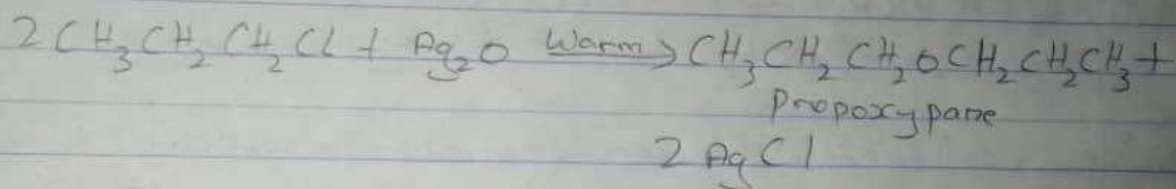 2CH₃CH₂CH₂Cl + Ag₂O Warm→ CH₃CH₂CH₂OCH₂CH₂CH₃ +
Propoxypane
2AgCl